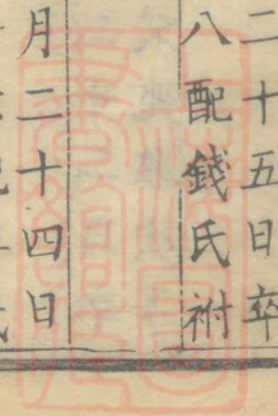 二十五日卒
八配錢氏祔
月二十四日